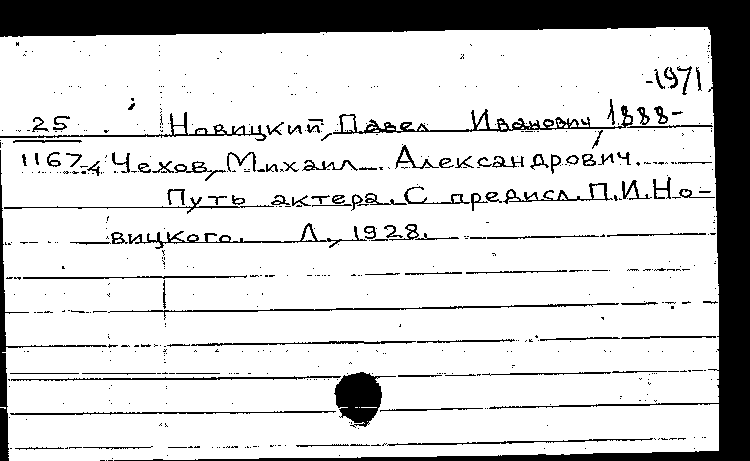 -1971
25 Новицкий, Павел Иванович, 1888-
1167-4 Чехов, Михаил Александрович.
Путь актера. С предисл. П.И.Но-
вицкого. Л., 1928.